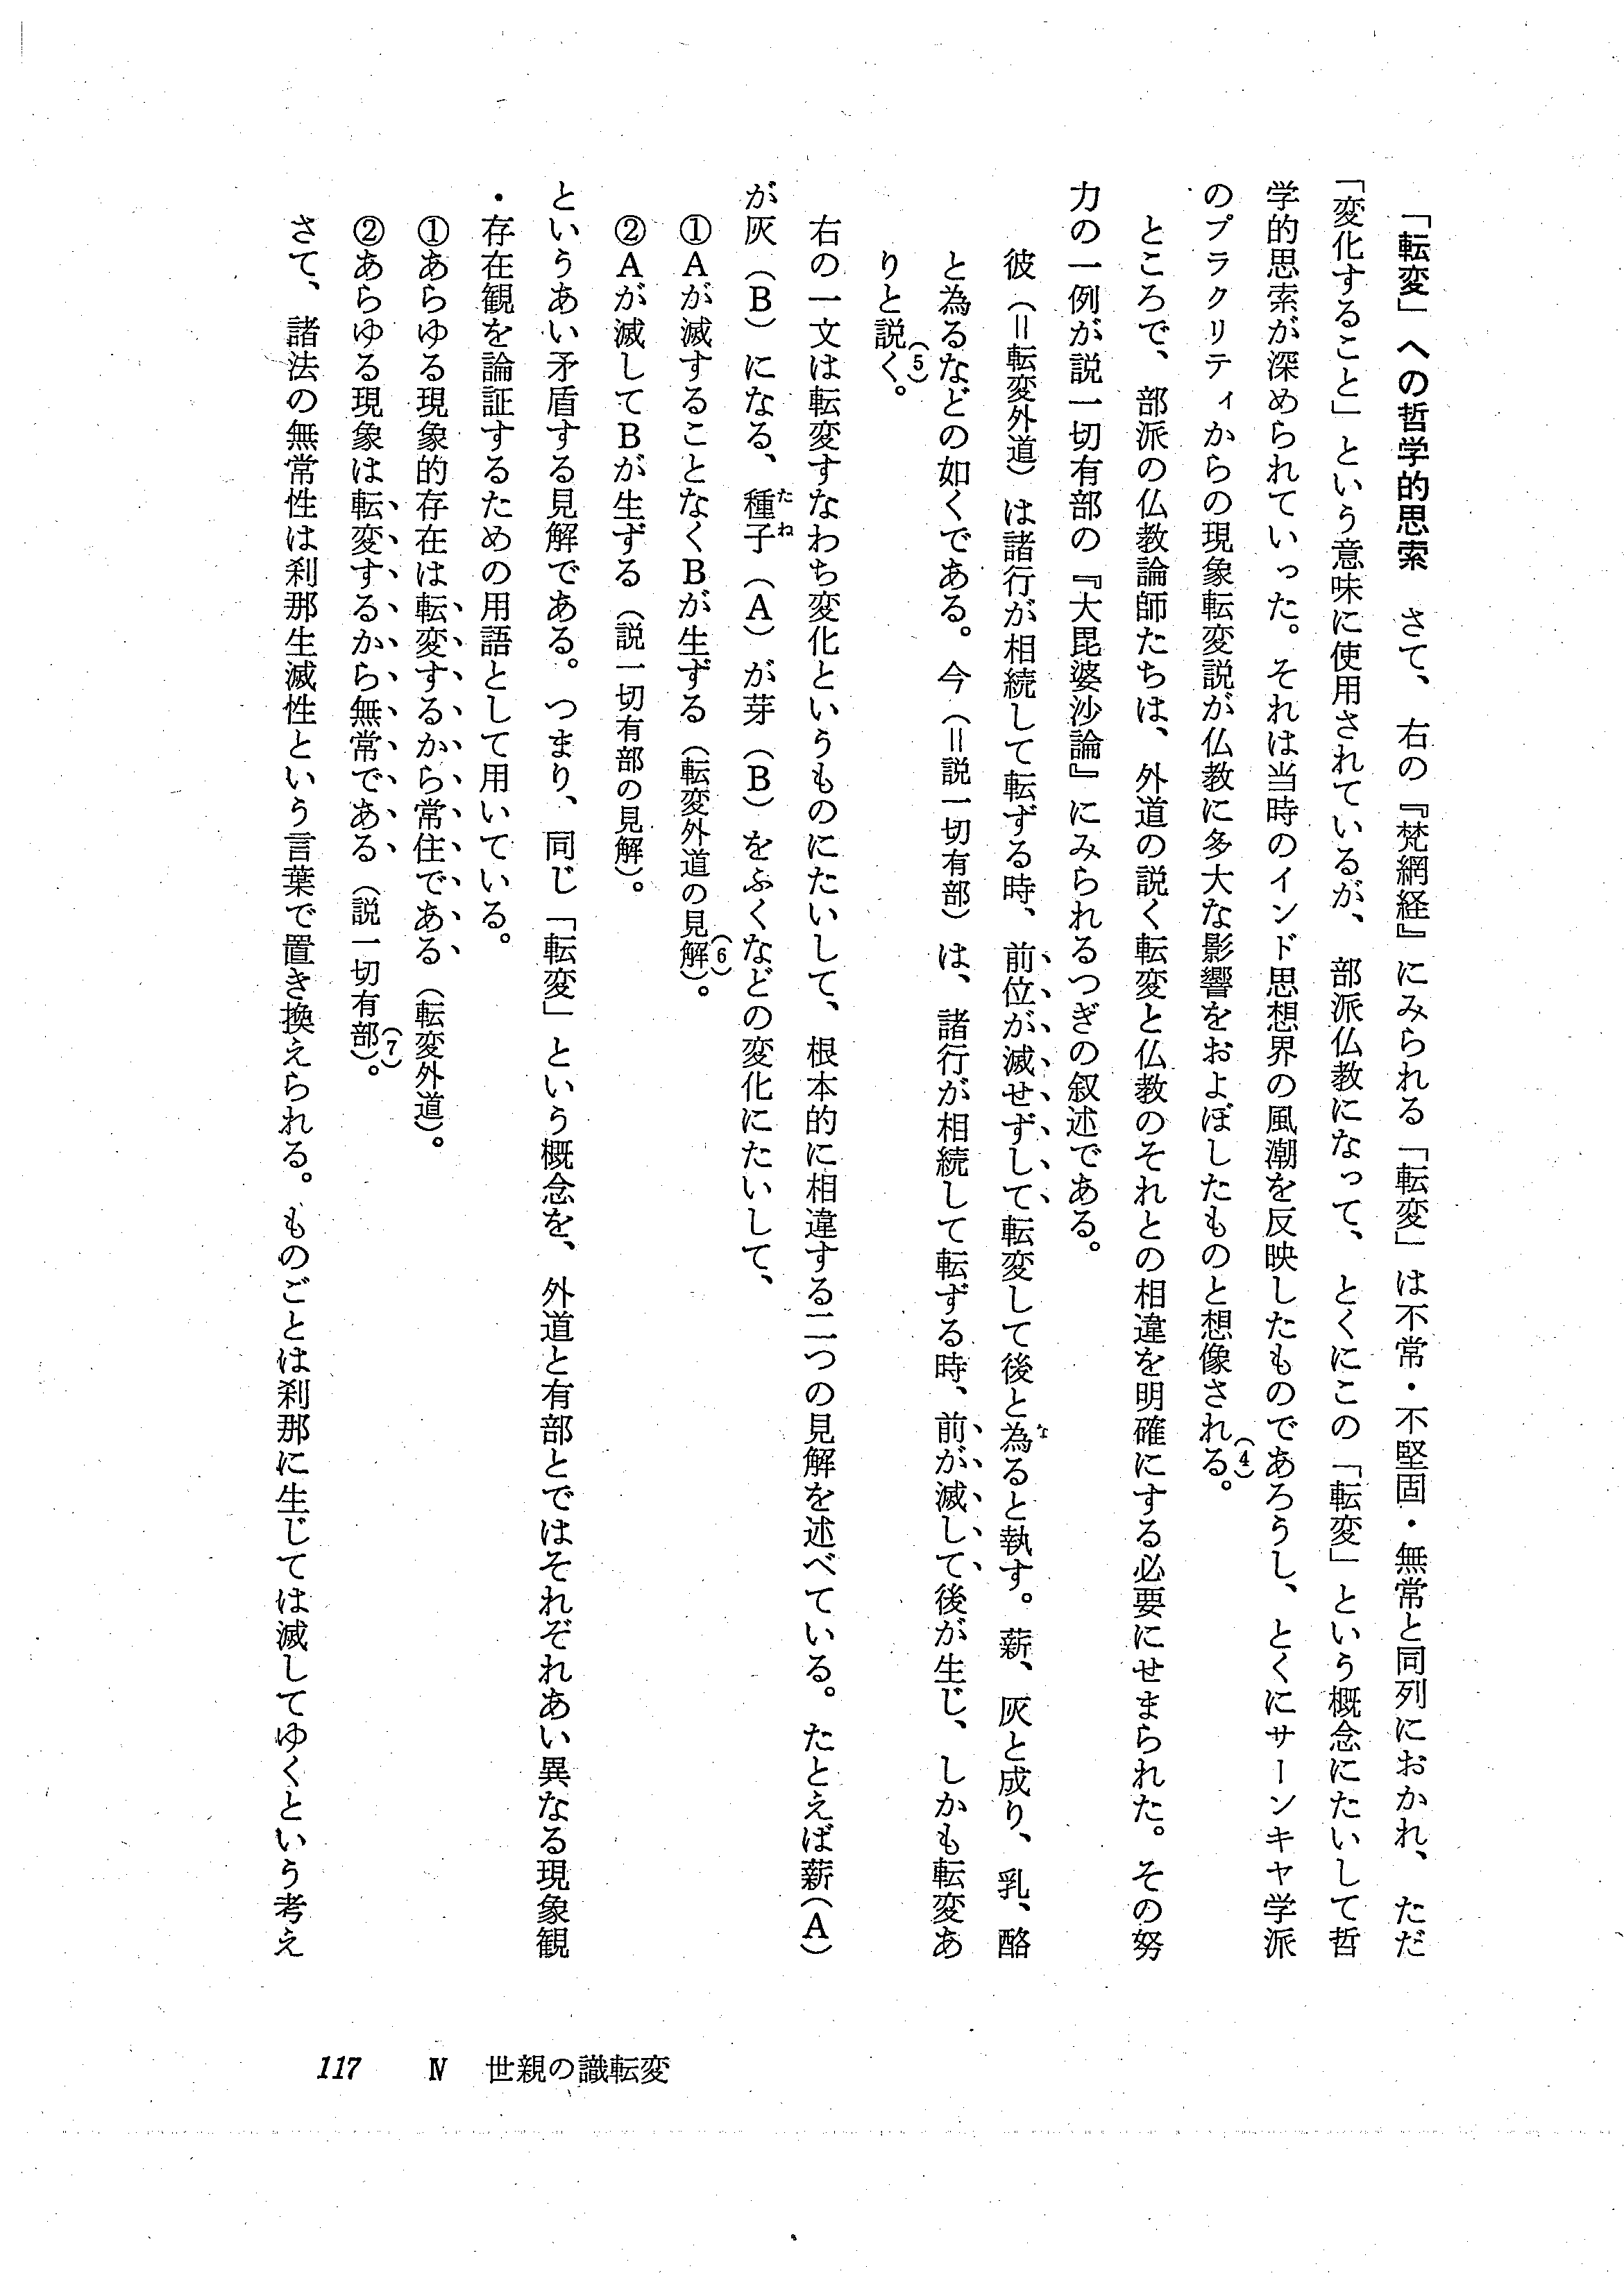 「転変」への哲学的思索　さて、右の『梵網経』にみられる「転変」は不常・不堅固・無常と同列におかれ、ただ
「変化すること」という意味に使用されているが、部派仏教になって、とくにこの「転変」という概念にたいして哲
学的思索が深められていった。それは当時のインド思想界の風潮を反映したものであろうし、とくにサーンキヤ学派
のプラクリティからの現象転変説が仏教に多大な影響をおよぼしたものと想像される(4)。
ところで、部派の仏教論師たちは、外道の説く転変と仏教のそれとの相違を明確にする必要にせまられた。その努
力の一例が説一切有部の『大毘婆沙論』にみられるつぎの叙述である。
彼（＝転変外道）は諸行が相続して転ずる時、前位が滅せずして転変して後と為(な)ると執す。薪、灰と成り、乳、酪
と為るなどの如くである。今（＝説一切有部）は、諸行が相続して転ずる時、前が滅して後が生じ、しかも転変あ
りと説く(5)。
右の一文は転変すなわち変化というものにたいして、根本的に相違する二つの見解を述べている。たとえば薪（A）
が灰（B）になる、種子(たね)（A）が芽（B）をふくなどの変化にたいして、
①Aが滅することなくBが生ずる（転変外道の見解(6)）。
②Aが滅してBが生ずる（説一切有部の見解）。
というあい矛盾する見解である。つまり、同じ「転変」という概念を、外道と有部とではそれぞれあい異なる現象観
・存在観を論証するための用語として用いている。
①あらゆる現象的存在は転変するから常住である（転変外道）。
②あらゆる現象は転変するから無常である（説一切有部(7)）。
さて、諸法の無常性は刹那生滅性という言葉で置き換えられる。ものごとは刹那に生じては滅してゆくという考え
117　Ⅳ　世親の識転変